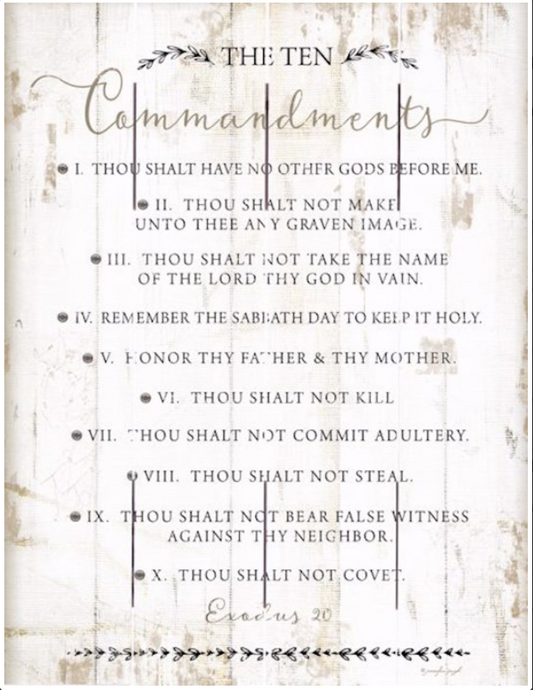 THE TEN
Commandments
I. THOU SHALT HAVE NO OTHER GODS BEFORE ME.
II. THOU SHALT NOT MAKE
UNTO THEE ANY GRAVEN IMAGE.
III. THOU SHALT NOT TAKE THE NAME
OF THE LORD THY GOD IN VAIN.
IV. REMEMBER THE SABBATH DAY TO KEEP IT HOLY.
V. HONOR THY FATHER & THY MOTHER.
VI. THOU SHALT NOT KILL
VII. THOU SHALT NOT COMMIT ADULTERY.
VIII. THOU SHALT NOT STEAL.
IX. THOU SHALT NOT BEAR FALSE WITNESS
AGAINST THY NEIGHBOR.
X. THOU SHALT NOT COVET.
Exodus 20